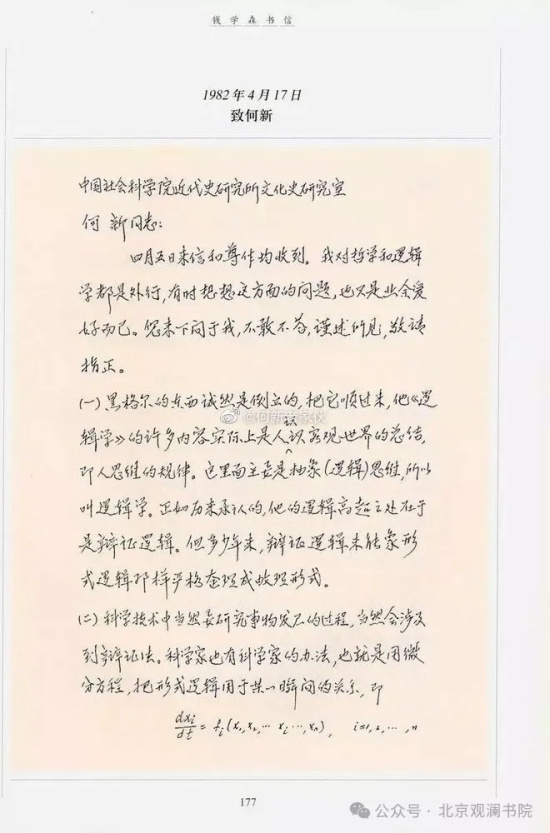 钱学森书信
1982年4月17日
致何新
中国社会科学院近代史研究所文化史研究室
何新同志:
四月五日来信和尊作均收到。我对哲学和逻辑
学都是外行,有时想想这方面的问题,也只是业余爱
好而已。您来下问于我,不敢不答,谨述所见,敬请
指正。
(一)黑格尔的东西诚然是倒立的,把它顺过来,他《逻
辑学》的许多内容实际上是人认识客观世界的总结,
即人思维的规律。这里面主要是抽象(逻辑)思维,所以
叫逻辑学。正如历来承认的,他的逻辑高超之处在于
是辩证逻辑。但多少年来,辩证逻辑未能象形
式逻辑那样严格查理成数理形式。
(二)科学技术中当然要研究事物发展的过程,当然会涉及
到辩证法。科学家也有科学家的办法,也就是用微
分方程,把形式逻辑用于某一瞬间的关系,即
dxi/dt = fi(x1, x2, … xi …, xn), i=1, 2, …, n
@何新老家伙
177
公众号·北京观澜书院